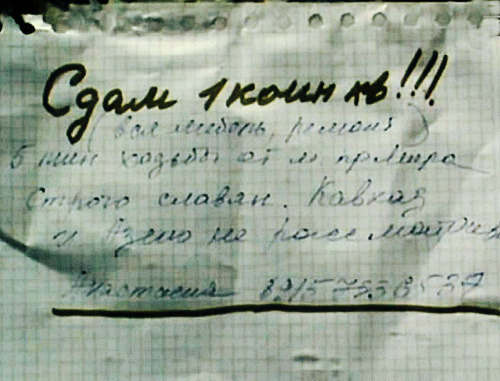 Сдам 1 комн кв!!!
(вся мебель, ремонт)
5 мин ходьбы от м. пр. Мира
Строго славян. Кавказ
и Азию не рассматрив
Анастасия